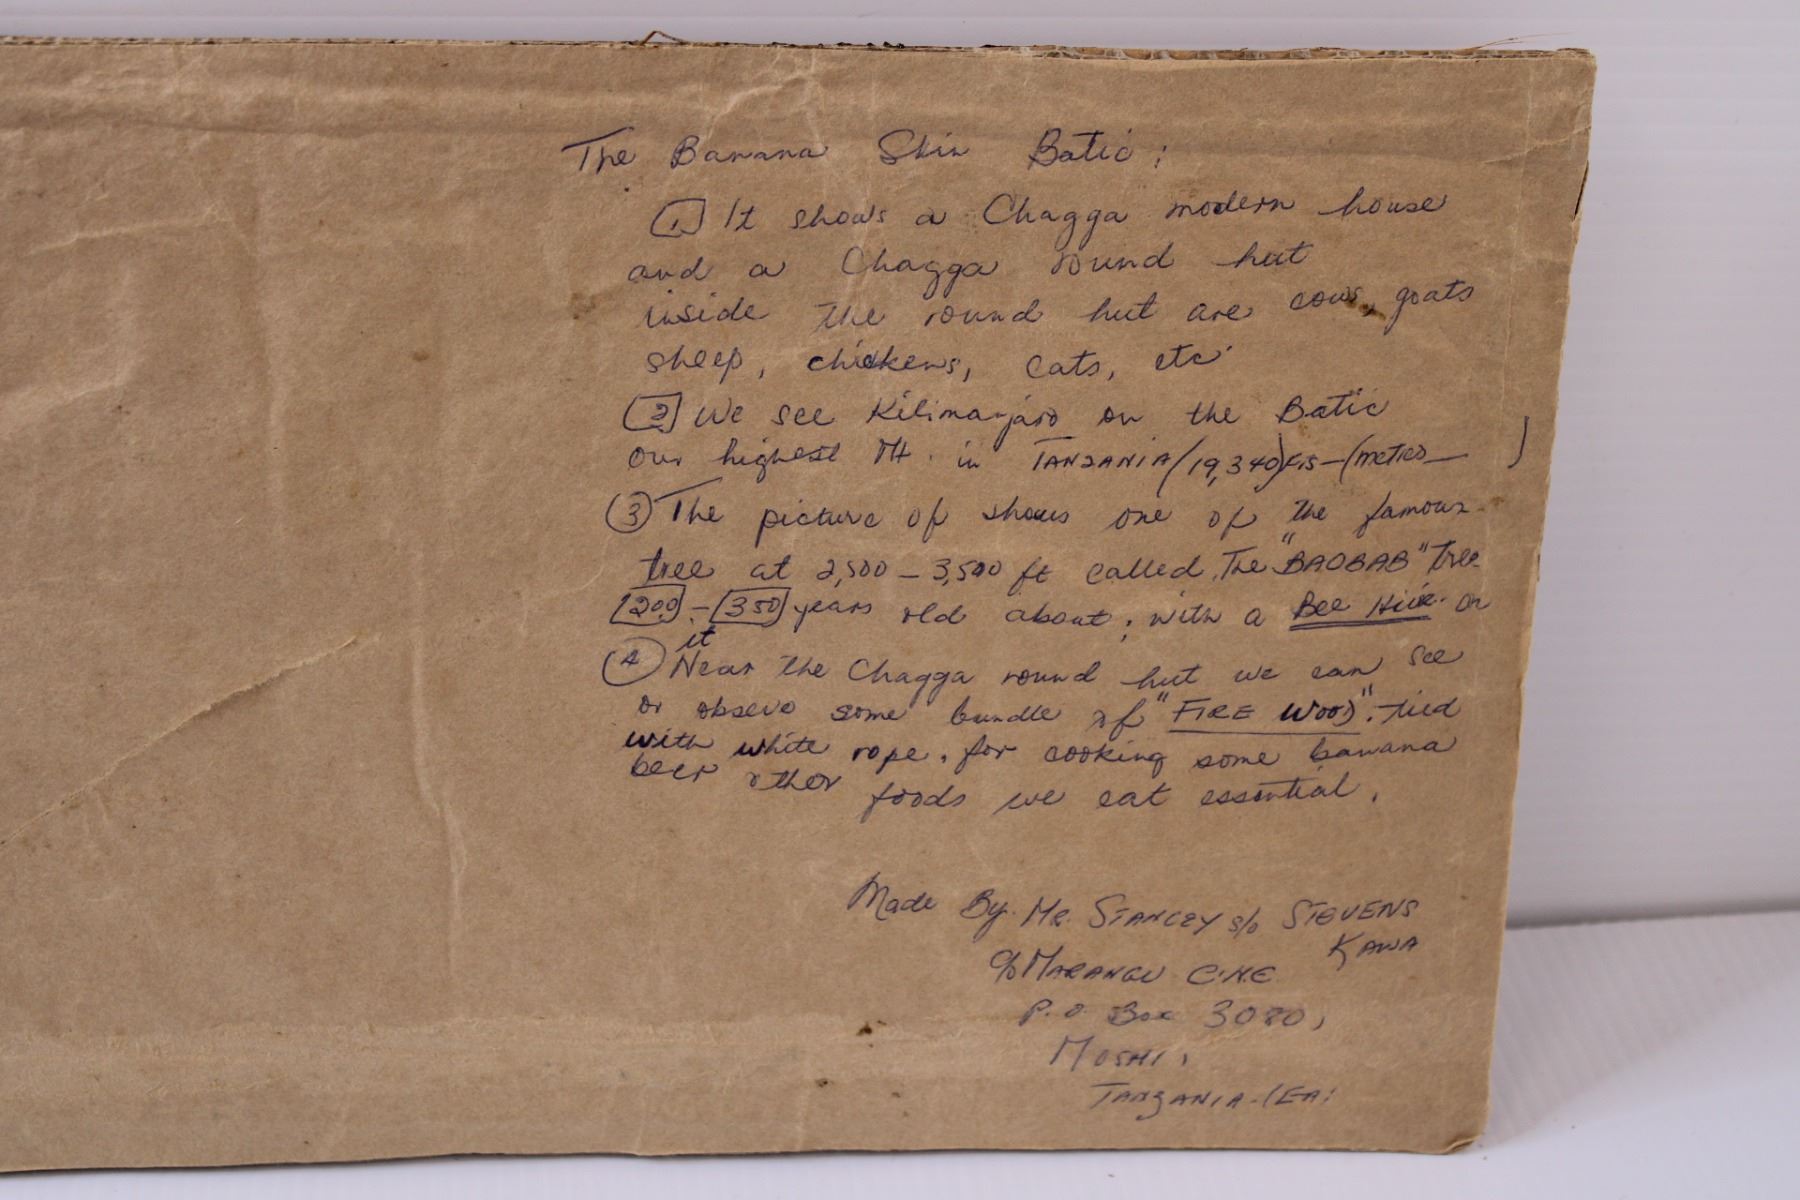 The Banana Skin Batic:
1. It shows a Chagga modern house
and a Chagga round hut
inside the round hut are cows, goats
sheep, chickens, cats, etc.
2 We see Kilimanjaro on the Batic
our highest Mt. in TANZANIA (19,340) fts – (metres — )
3 The picture of shows one of the famous
tree at 2,500 – 3,500 ft called. The "BAOBAB" tree
200 – 350 years old about; with a Bee Hive. on
it
4 Near the Chagga round hut we can see
or observe some bundle of "FIRE WOOD". tied
with white rope. for cooking some banana
beer other foods we eat essential.
Made By. MR. STANLEY s/o STEVENS
KAWA
c/o MARANGU C.N.E
P.O Box 3080,
MOSHI,
TANZANIA. (EA: